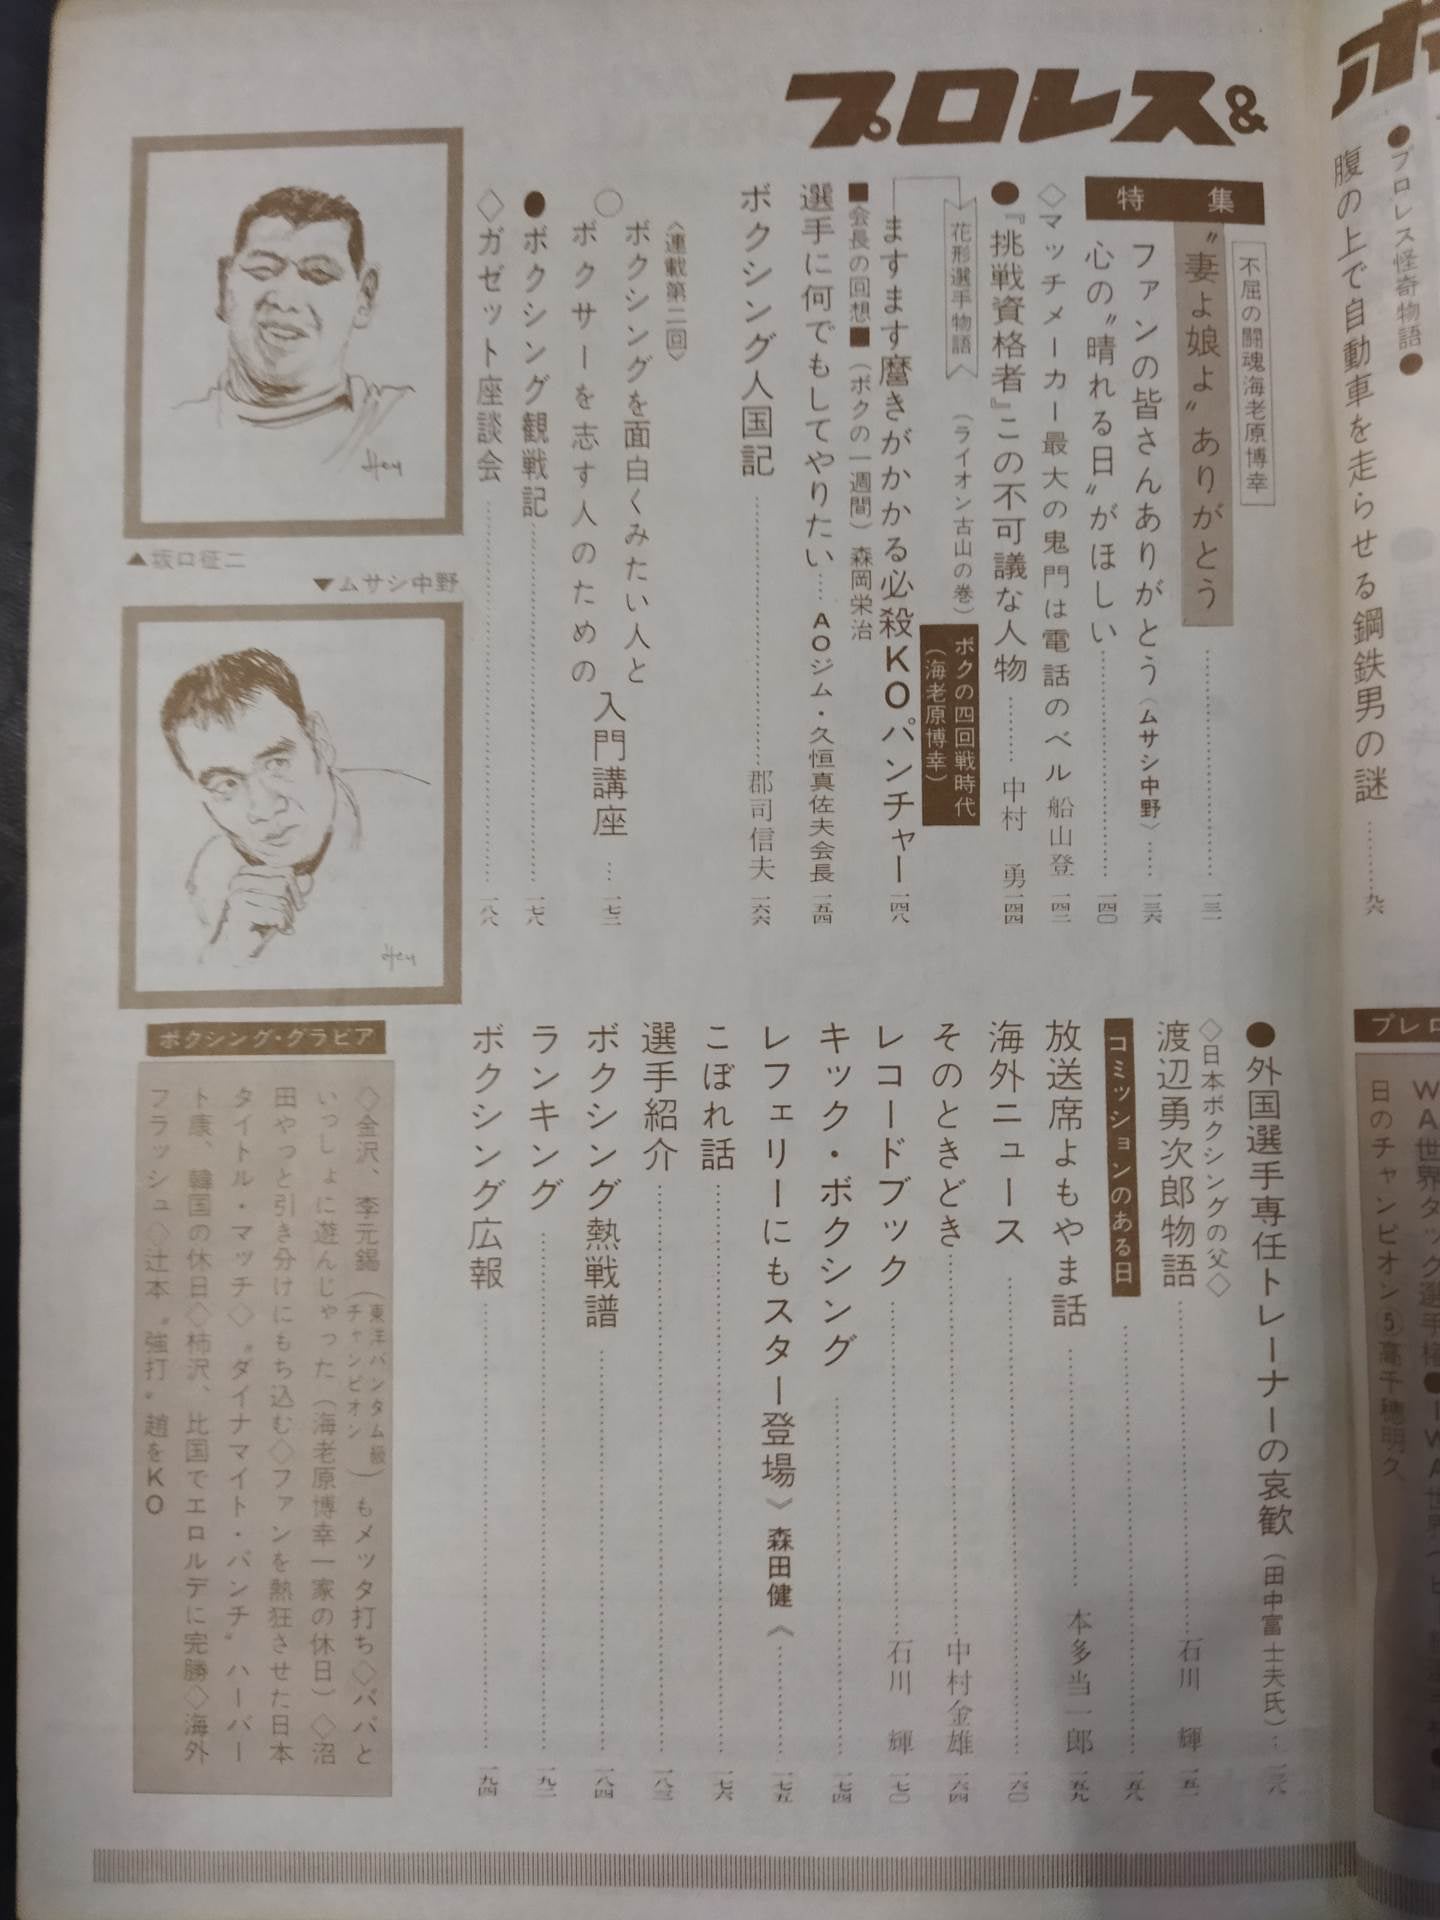 プロレス&
特集
不屈の闘魂海老原博幸
〝妻よ娘よ〟ありがとう……一三一
ファンの皆さんありがとう〈ムサシ中野〉……一三六
心の〝晴れる日〟がほしい……一四〇
◇マッチメーカー最大の鬼門は電話のベル 船山登 一四二
●『挑戦資格者』この不可議な人物……中村 勇 一四四
花形選手物語
(ライオン古山の巻)
ますます磨きがかかる必殺KOパンチャー 一四八
ボクの四回戦時代
(海老原博幸)
■会長の回想■(ボクの一週間)森岡栄治
選手に何でもしてやりたい…AOジム・久恒真佐夫会長 一五四
ボクシング人国記……郡司信夫 一六六
〈連載第二回〉
○ボクシングを面白くみたい人と
ボクサーを志す人のための
入門講座…一七二
●ボクシング観戦記……一七八
◇ガゼット座談会……一八八
▲坂口征二
▼ムサシ中野
Hey
Hey
●外国選手専任トレーナーの哀歓(田中富士夫氏)…一二八
◇日本ボクシングの父◇
渡辺勇次郎物語……石川 輝 一五一
コミッションのある日……一五八
放送席よもやま話……本多当一郎 一五九
海外ニュース……一六〇
そのときどき……中村金雄 一六四
レコードブック……石川 輝 一七〇
キック・ボクシング……一七四
レフェリーにもスター登場》森田健《……一七五
こぼれ話……一七六
選手紹介……一八三
ボクシング熱戦譜……一八四
ランキング……一九二
ボクシング広報……一九四
ボクシング・グラビア
◇金沢、李元錫(東洋バンタム級チャンピオン)もメッタ打ち◇パパと
いっしょに遊んじゃった(海老原博幸一家の休日)◇沼
田やっと引き分けにもち込む◇ファンを熱狂させた日本
タイトル・マッチ◇〝ダイナマイト・パンチ〟ハーバー
ト康、韓国の休日◇柿沢、比国でエロルデに完勝◇海外
フラッシュ◇辻本〝強打〟趙をKO
●プロレス怪奇物語●
腹の上で自動車を走らせる鋼鉄男の謎……九六
日のチャンピオン⑤高千穂明久